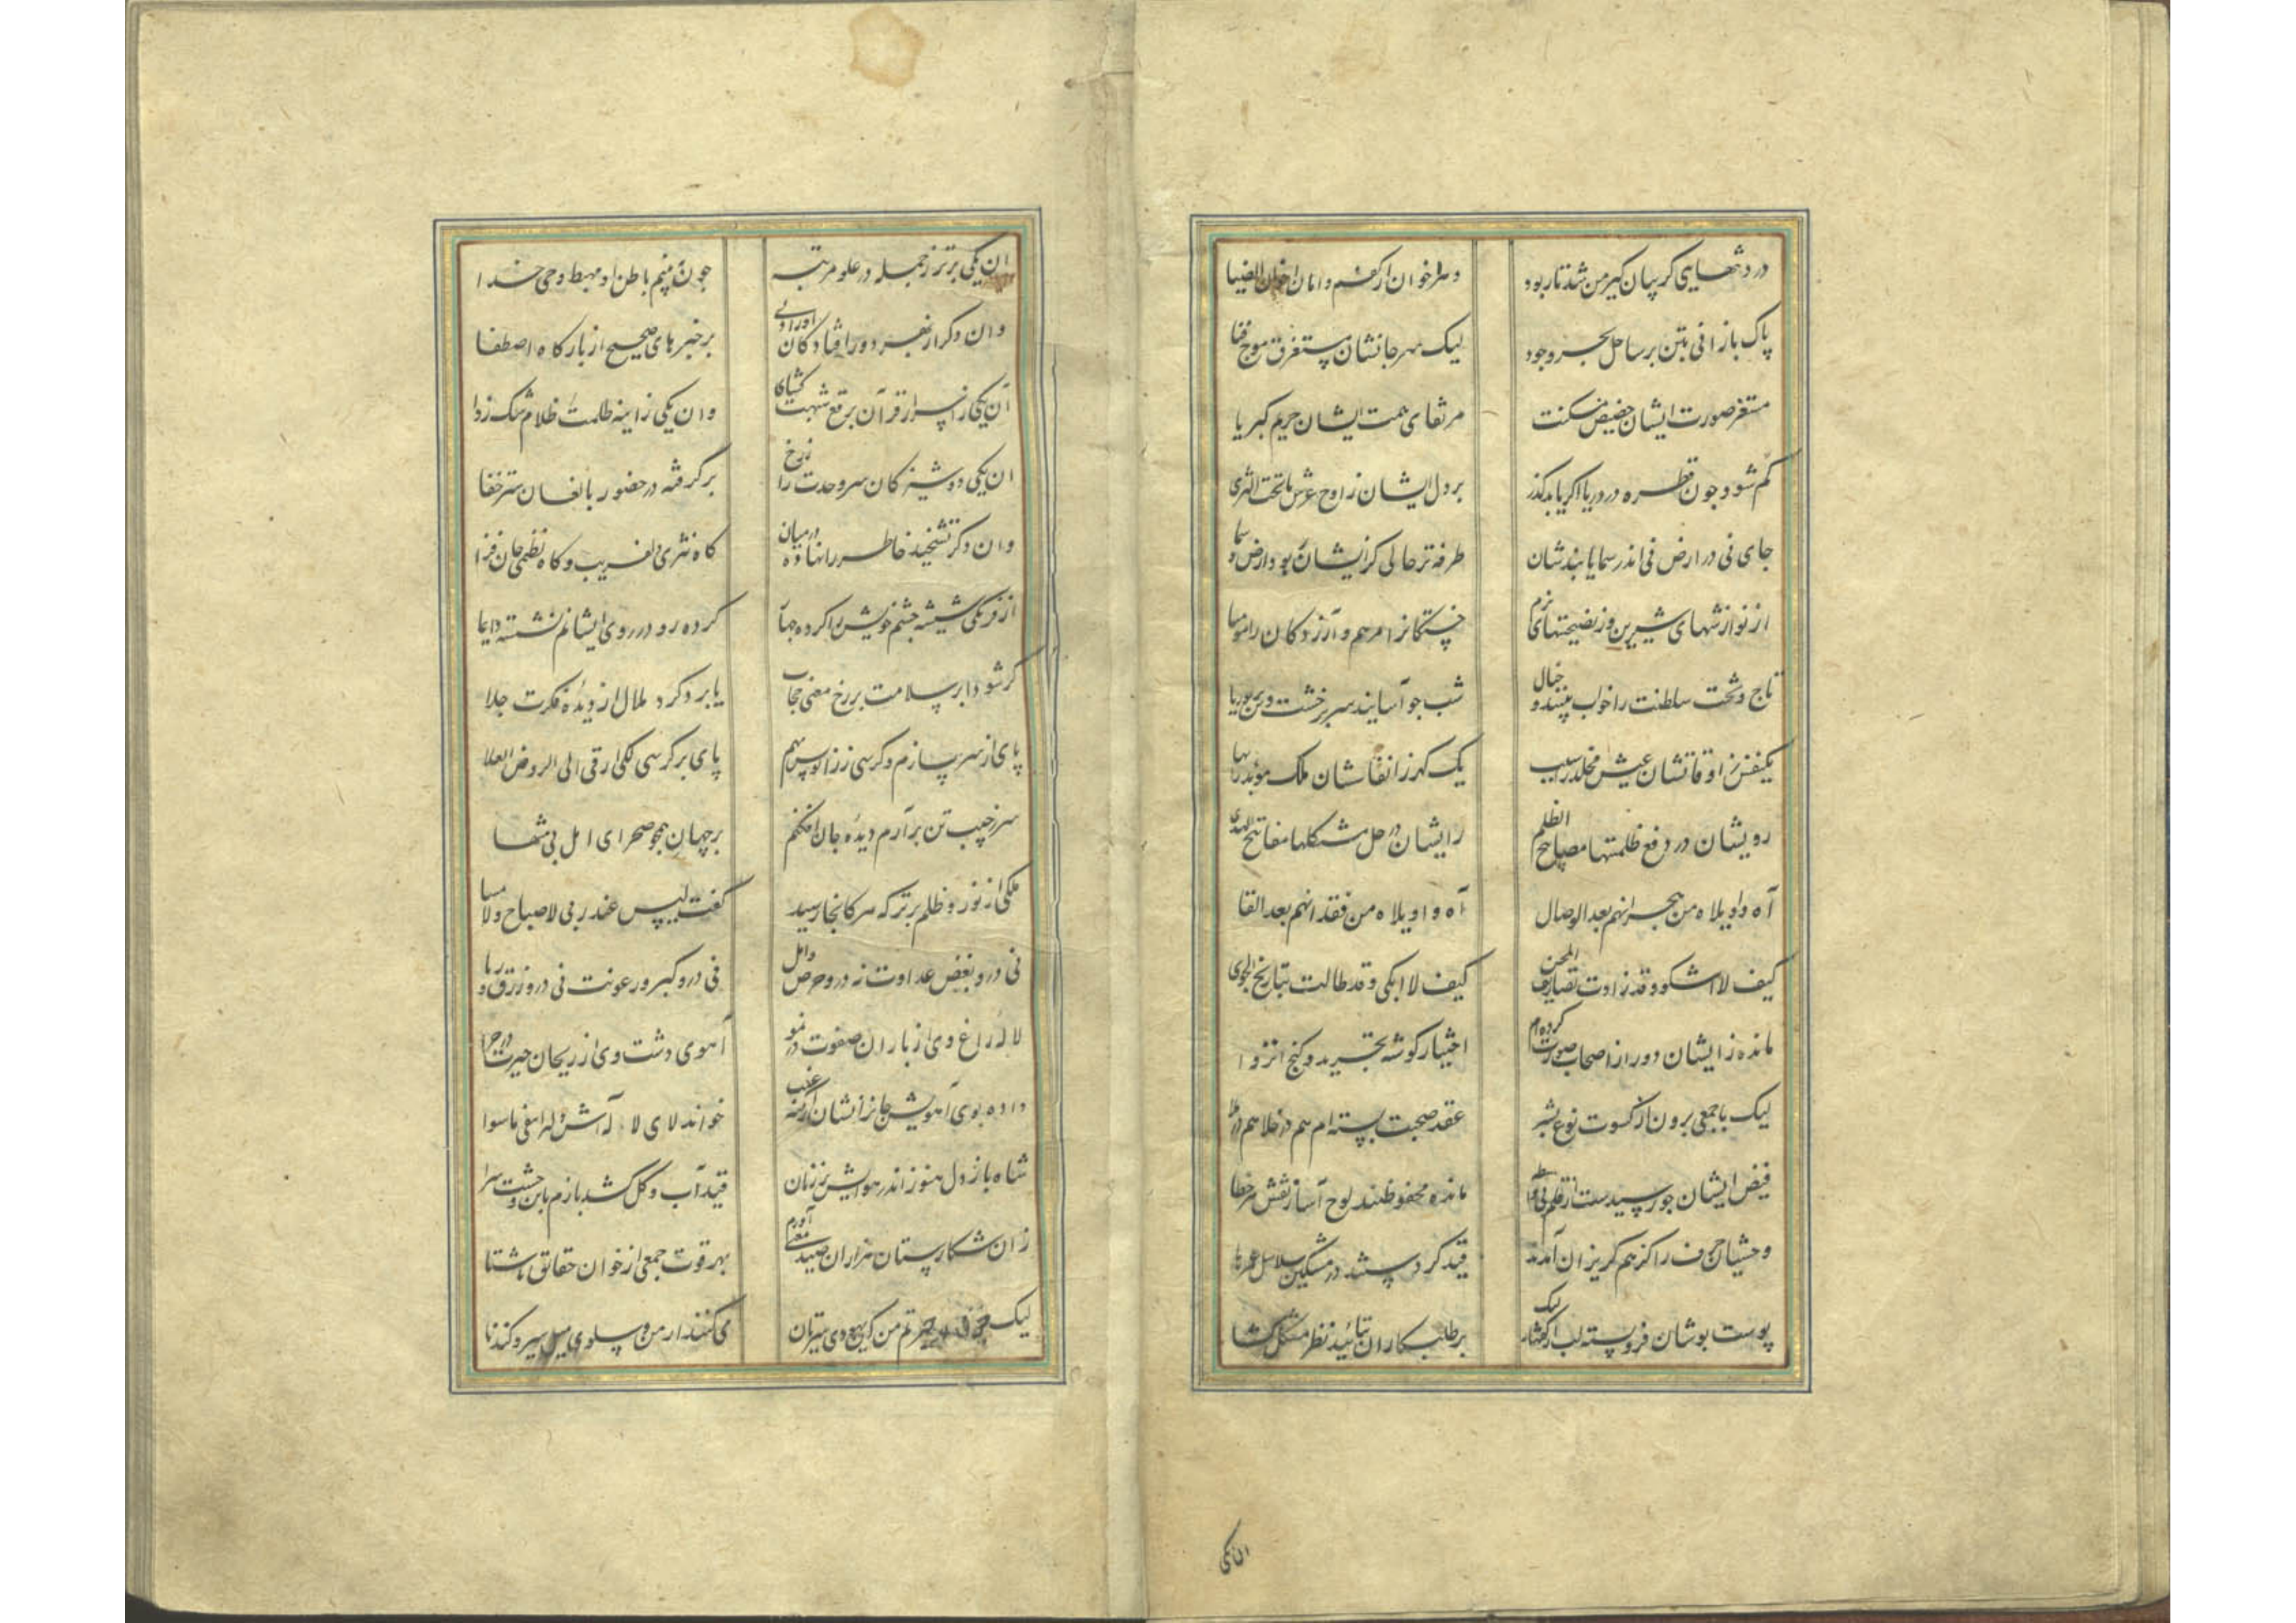 در دشتهای کریبان کیر من شد تار بود
پاک بازانی بتن بر ساحل بحر وجود لیک سر جانشان مستغرق موج فنا
مستقر صورت ایشان حضیض مسکنت مرتقای همت ایشان حریم کبریا
کم شود چون قطره در دریا اکر یابد کذر بر دل ایشان ز اوج عرش تا تحت الثری
جای نی در ارض نی اندر سما یابندشان طرفه تر حالی کزیشان پر بود ارض و سما
از نوازشهای شیرین وز نصیحتهای نرم خستکانرا مرهم و آزردکان را مومیا
تاج و تخت سلطنت را خواب بینند و خیال شب جو آسایند سر بر خشت و تن بر بوریا
یکنفس ز اوقاتشان عیش مخلد را سبب یک کهر ز انفاسشان ملک موبد را بها
رویشان در دفع ظلمتها مصابیح الظلم رایشان در حل مشکلها مفاتیح الهدی
آه واویلاه من هجرانهم بعد الوصال آه واویلاه من فقدانهم بعد اللقا
کیف لا اشکو وقد زادت تصاریف المحن کیف لا ابکی وقد طالت تباریح الجوی
مانده ز ایشان دور از اصحاب صورت کرده ام اختیار کوشه تجرید و کنج انزوا
لیک با جمعی برون از کسوت نوع بشر عقد صحبت بسته ام هم در خلا هم در ملا
فیض ایشان جو رسیدست از قلم بی واسطه مانده محفوظند لوح آسا ز نقش هر خطا
وحشیان حرف را کز هم کریزان آمدند قید کردستند در مشکین سلاسل
پوست پوشان فروبسته لب از کفتار لیک بر طلبکاران بتأیید نظر مشکل کشا
ان یکی
ان یکی برتر ز جمله در علو مرتبه جون نیم باطن او مهبط وحی خدا
وان دکر از بهر دور افتادکان اورا ولی بر خبرهای صحیح از بارکاه اصطفا
آن یکی از اسرار قرآن برقع شبهت کشای وان یکی ز اینه طلعت ظلام شک زدا
ان یکی دوشیزکان سر وحدت را ز رخ برکرفته در حضور بالغان ستر خفا
وان دکر تشحیذ خاطر را نهاده در میان کاه نثری دلفریب و کاه نظمی جان فزا
از فرنکی شیشه جشم خویش را کرده جهار کرده رو در روی ایشانم نشسته دایما
کر شود ابر سلامت بر رخ معنی حجاب یا برد کرد ملال از دیده فکرت جلا
پای از سر سازم و کرسی ز زانو پس نهم پای بر کرسی لکی ارقی الی الروض العلا
سر ز جیب تن برآرم دیده جان افکنم بر جهان همچو صحرای امل بی منتها
ملکی از نور و ظلم برتر که هر کانجا رسید کفت لیس عند ربی لا صباح و لا مسا
نی درو بغض عداوت نه درو حرص و امل نی درو کبر و رعونت نی درو زرق و ریا
لاله راغ وی از باران صفوت در نمو آهوی دشت وی از ریحان حیرت در چرا
داده بوی آهویش جانرا نشان از خواند لای لا له اش دل را نفی ماسوا
شاه باز دل هنوز اندر هوایش پر زنان قید آب و کل کشد بازم باین وحشت سرا
زان شکارستان هزاران صید معنی آورم بهر قوت جمعی از خوان حقایق ناشتا
لیک من کایهودی سیرتان می کنند از من و سلوی میل سیر و کندنا